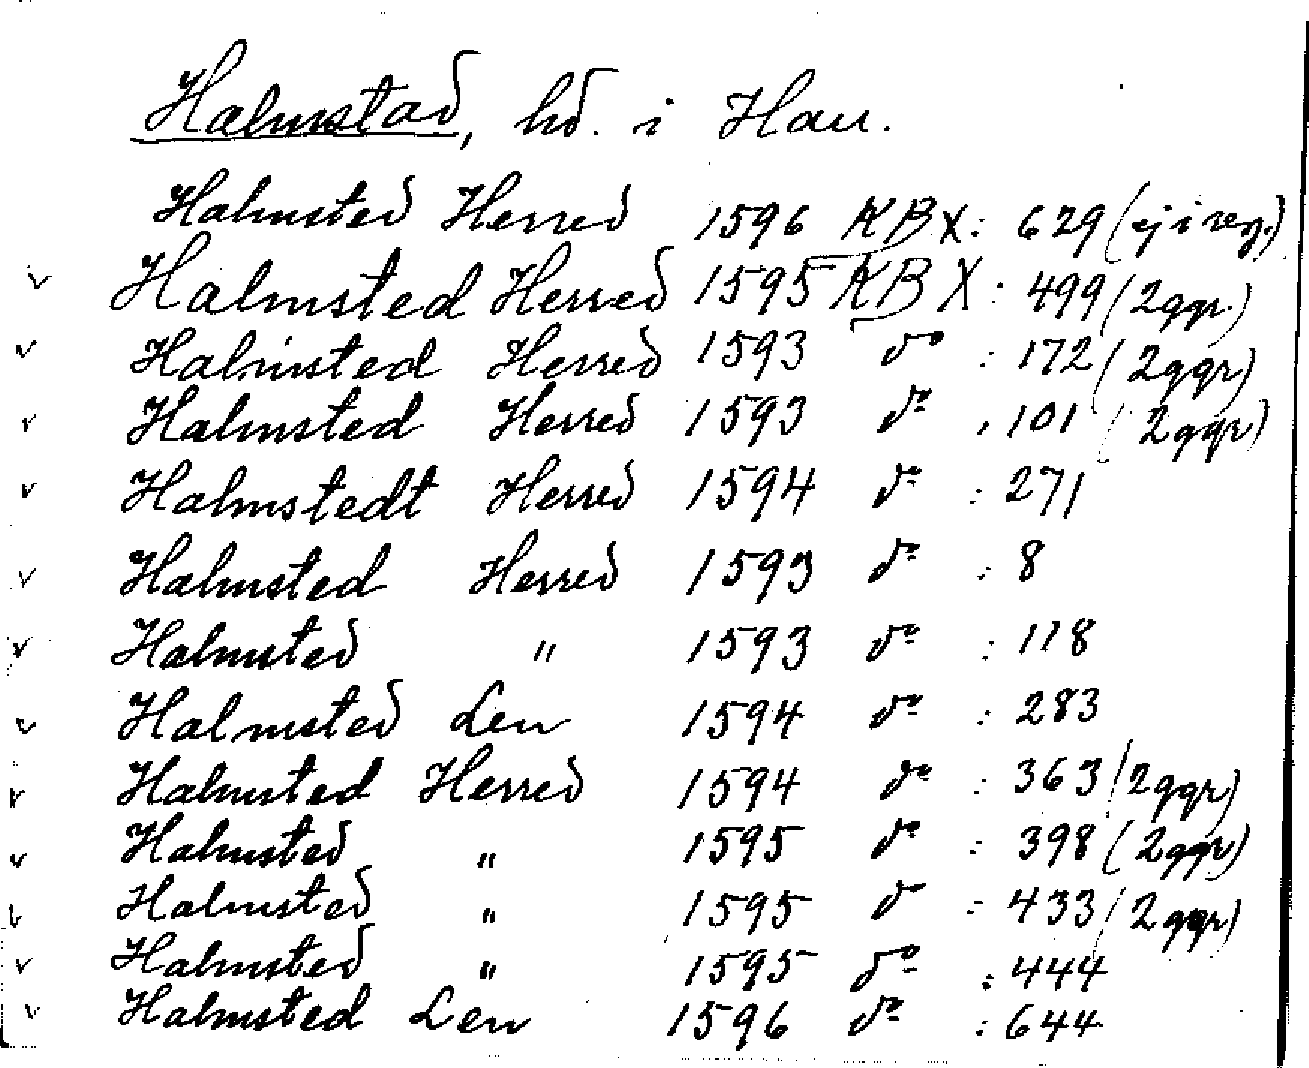 Halmstad, hd. i Hall.
Halmsted Herred 1596 KB X: 629 (ej i reg.)
v Halmsted Herred 1595 KB X: 499 (2ggr.)
v Halmsted Herred 1593 do : 172 (2ggr)
v Halmsted Herred 1593 do : 101 (2ggr)
v Halmstedt Herred 1594 do : 271
v Halmsted Herred 1593 do : 8
v Halmsted " 1593 do : 118
v Halmsted Len 1594 do : 283
v Halmsted Herred 1594 do : 363 (2ggr)
v Halmsted " 1595 do : 398 (2ggr)
v Halmsted " 1595 do : 433 (2ggr)
v Halmsted " 1595 do : 444
v Halmsted Len 1596 do : 644